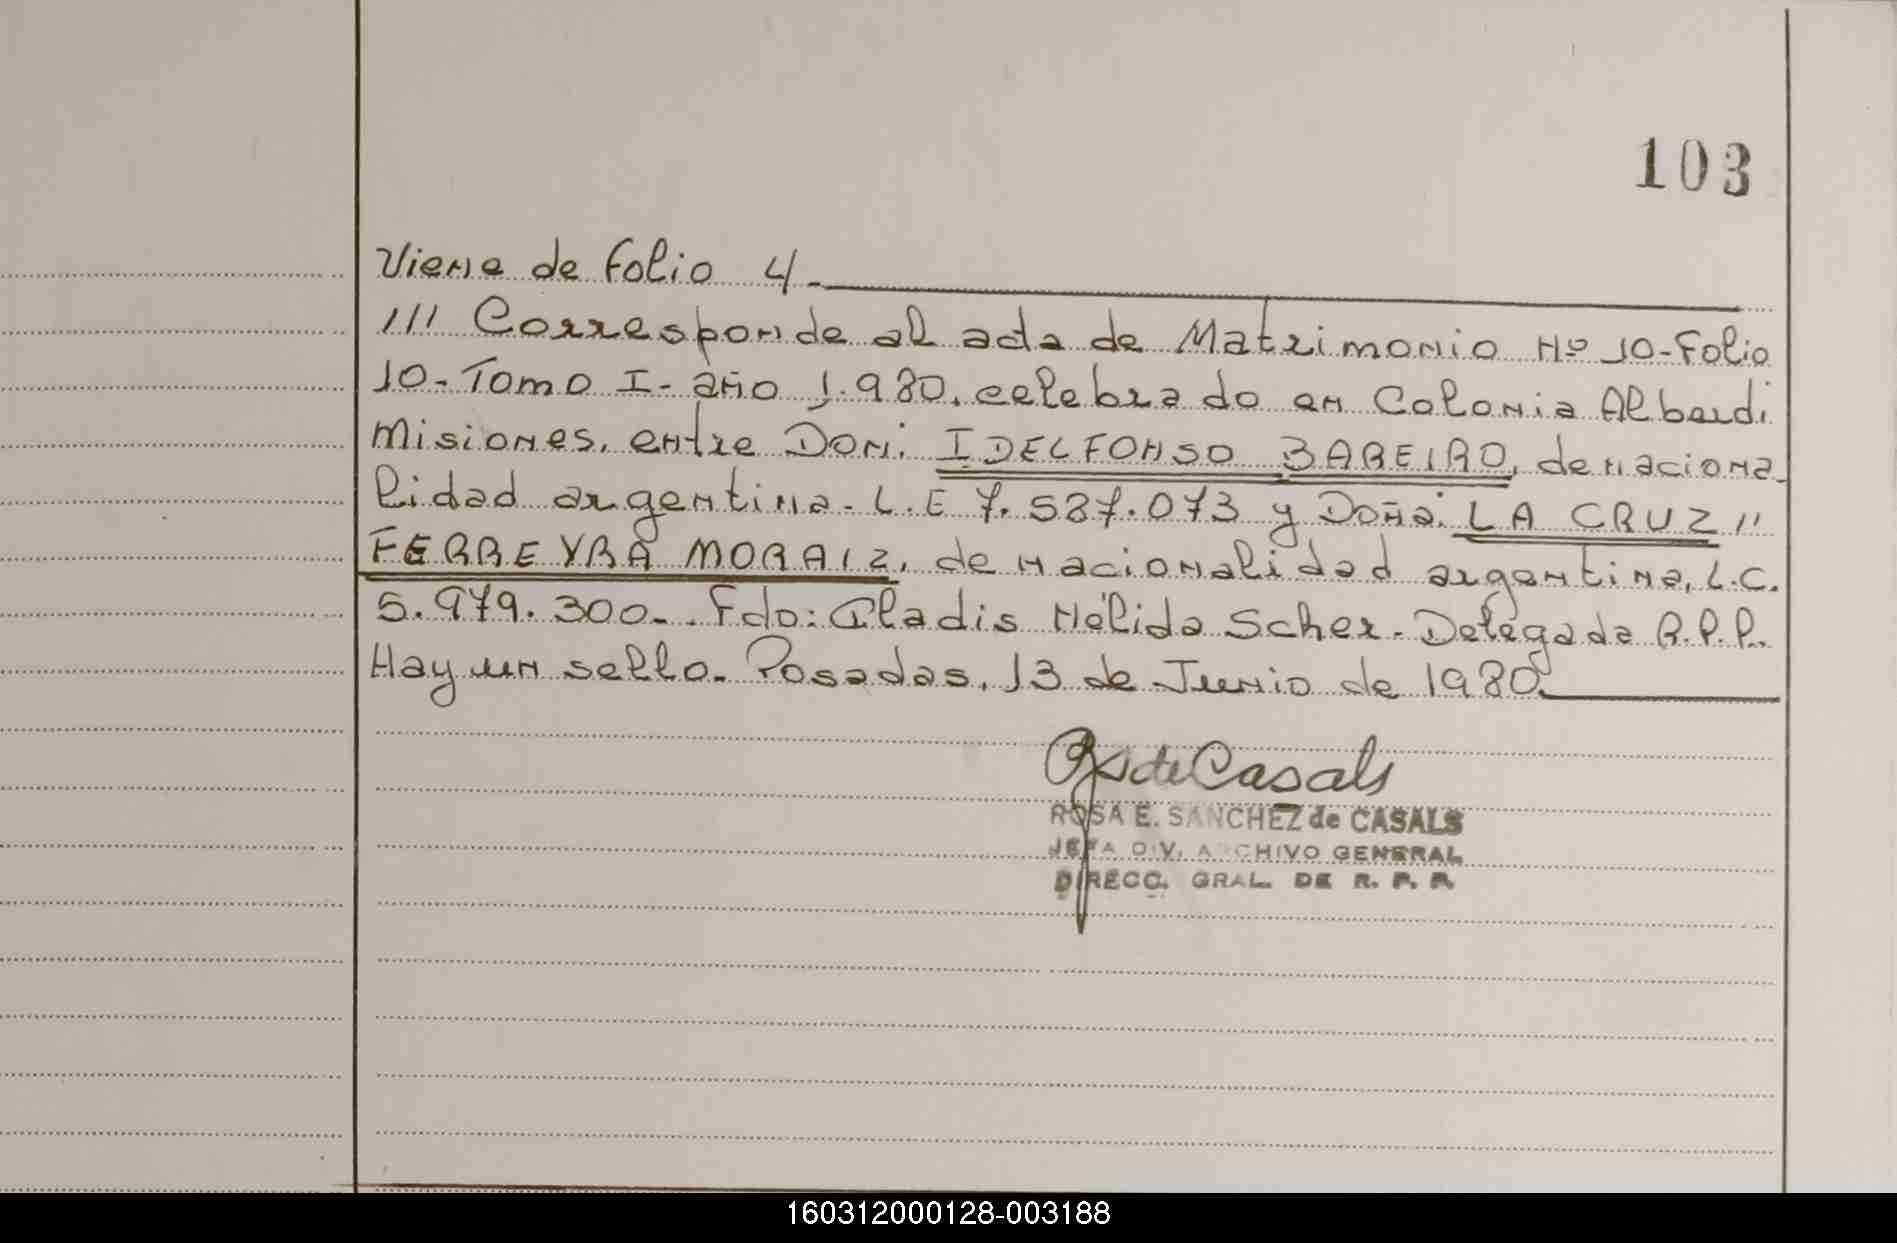 103
Viene de folio 4.
/// Corresponde al acta de Matrimonio Nº 10-Folio
10-Tomo I-año 1.980. celebrado en Colonia Alberdi
Misiones, entre Don. IDELFONSO BAREIRO, de naciona-
lidad argentina. L.E 7.587.073 y Doña. LA CRUZ //
FERREYRA MORAIZ, de nacionalidad argentina, L.C.
5.979.300-. Fdo: Gladis Nélida Scher. Delegada R.P.P..
Hay un sello. Posadas, 13 de Junio de 1980.
RS de Casals
ROSA E. SANCHEZ de CASALS
JEFA DIV. ARCHIVO GENERAL
DIRECC. GRAL. DE R. P. P.
160312000128-003188